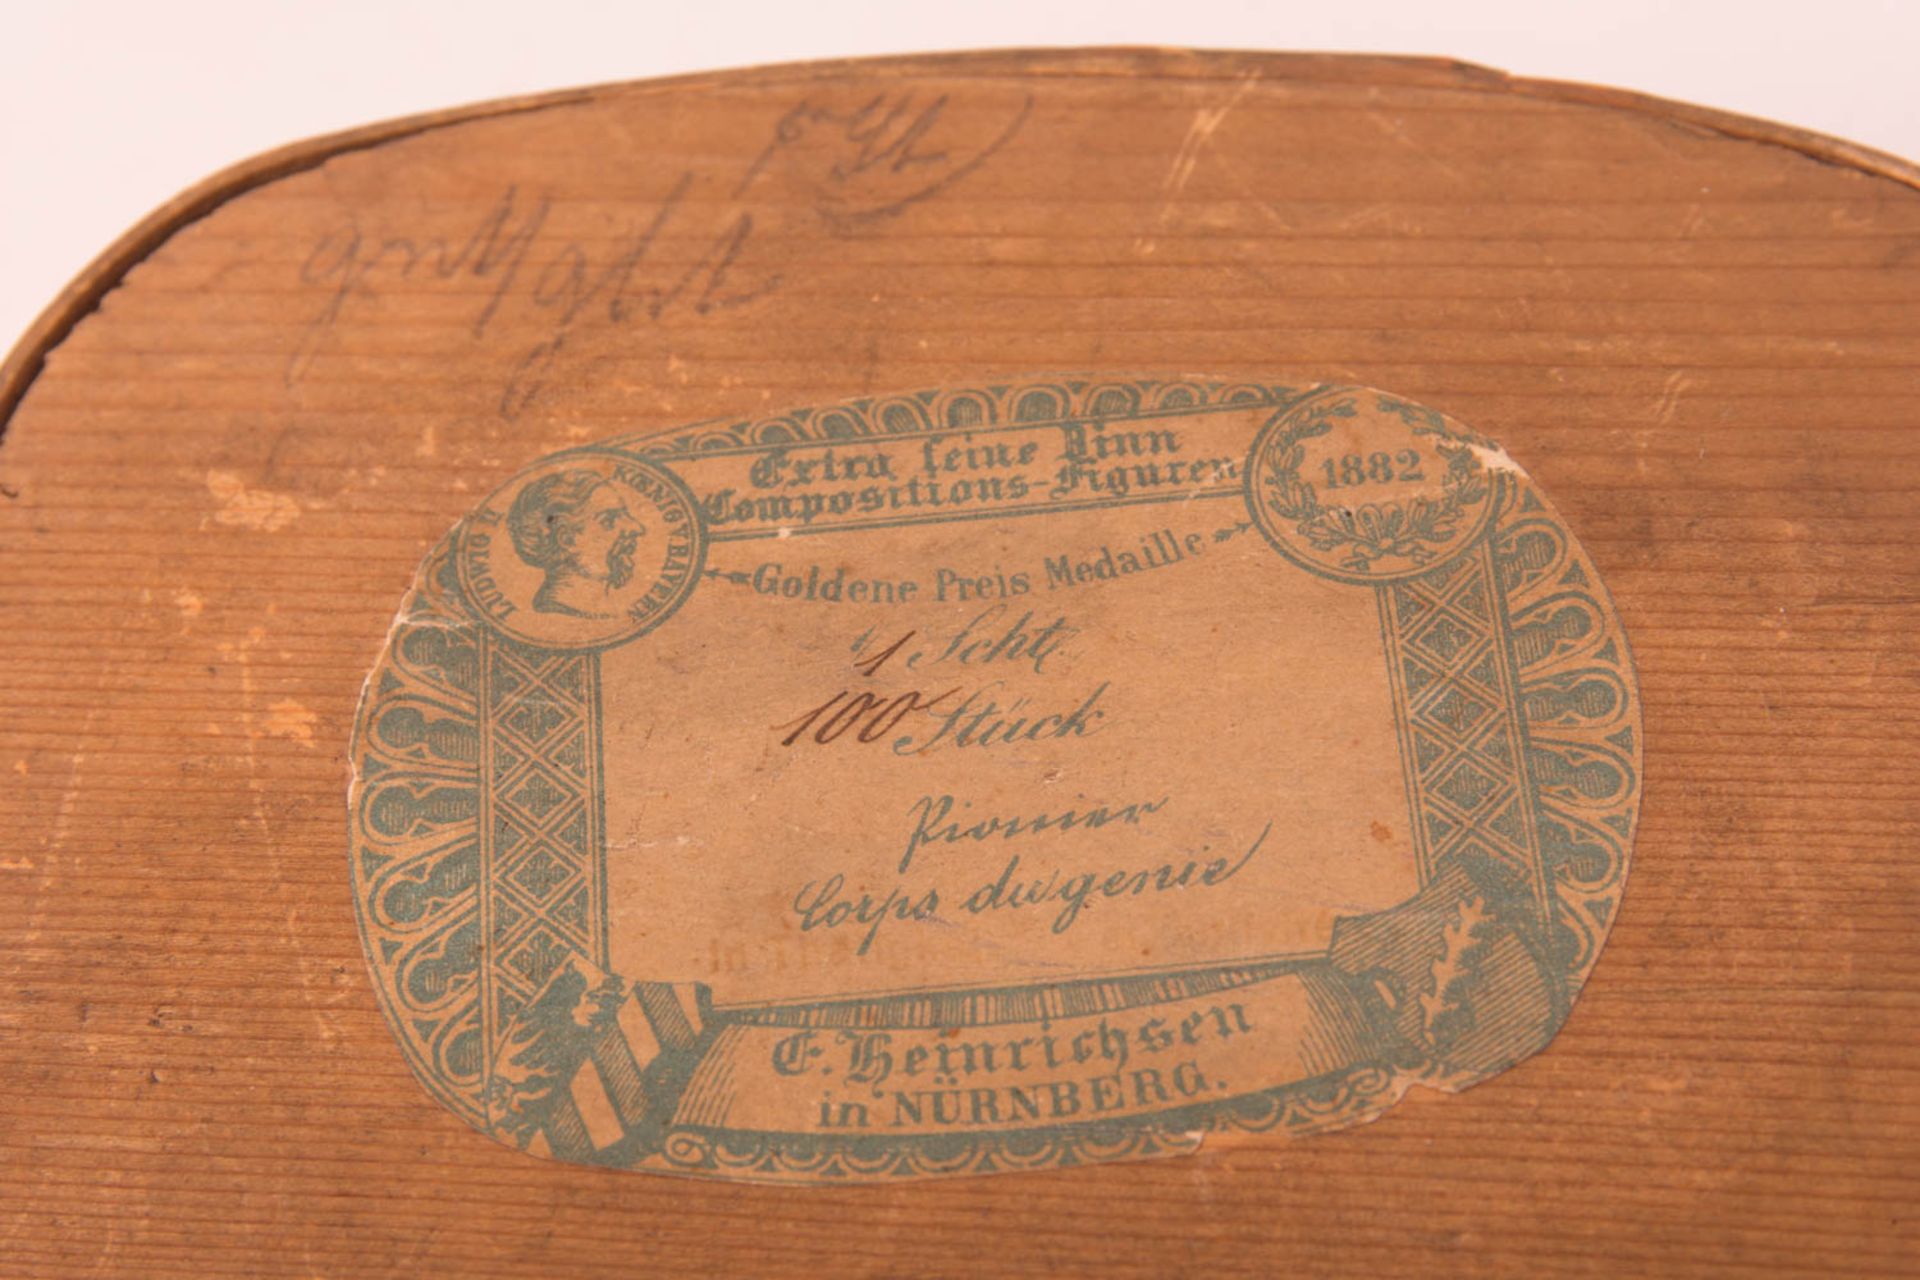 Extra feine Zinn
Compositions-Figuren
LUDWIG I KŒNIG V. BAYERN
1882
Goldene Preis Medaille
1 Scht
100 Stück
Pionier
Corps du genie
E. Heinrichsen
in NÜRNBERG.